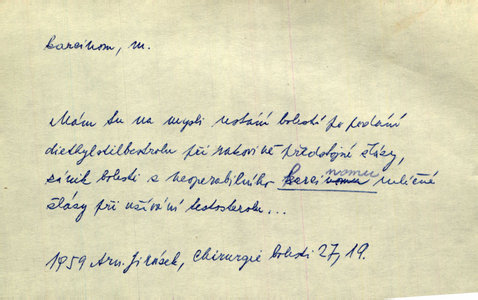 karcinom, m.
Mám tu na mysli ustání bolestí po podání
diethylstilbestrolu při rakovině předstojné žlázy,
zánik bolesti z inoperabilního karcinomu mléčné
žlázy při užívání testosteronu...
1959 Arn. Jirásek, Chirurgie bolesti 27, 19.